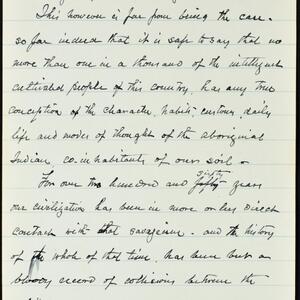 This however is far from being the case.
so far indeed that it is safe to say that no
more than one in a thousand of the intelligent
cultivated people of this country, has any true
conception of the character, habits, customs, daily
life and modes of thought of the aboriginal
Indian, co-inhabitants of our soil -
sixty
For over two hundred and fifty years
our civilization has been in more or less direct
contact with that savageism - and the history
of the whole of that time, has been but a
bloody record of collisions between the